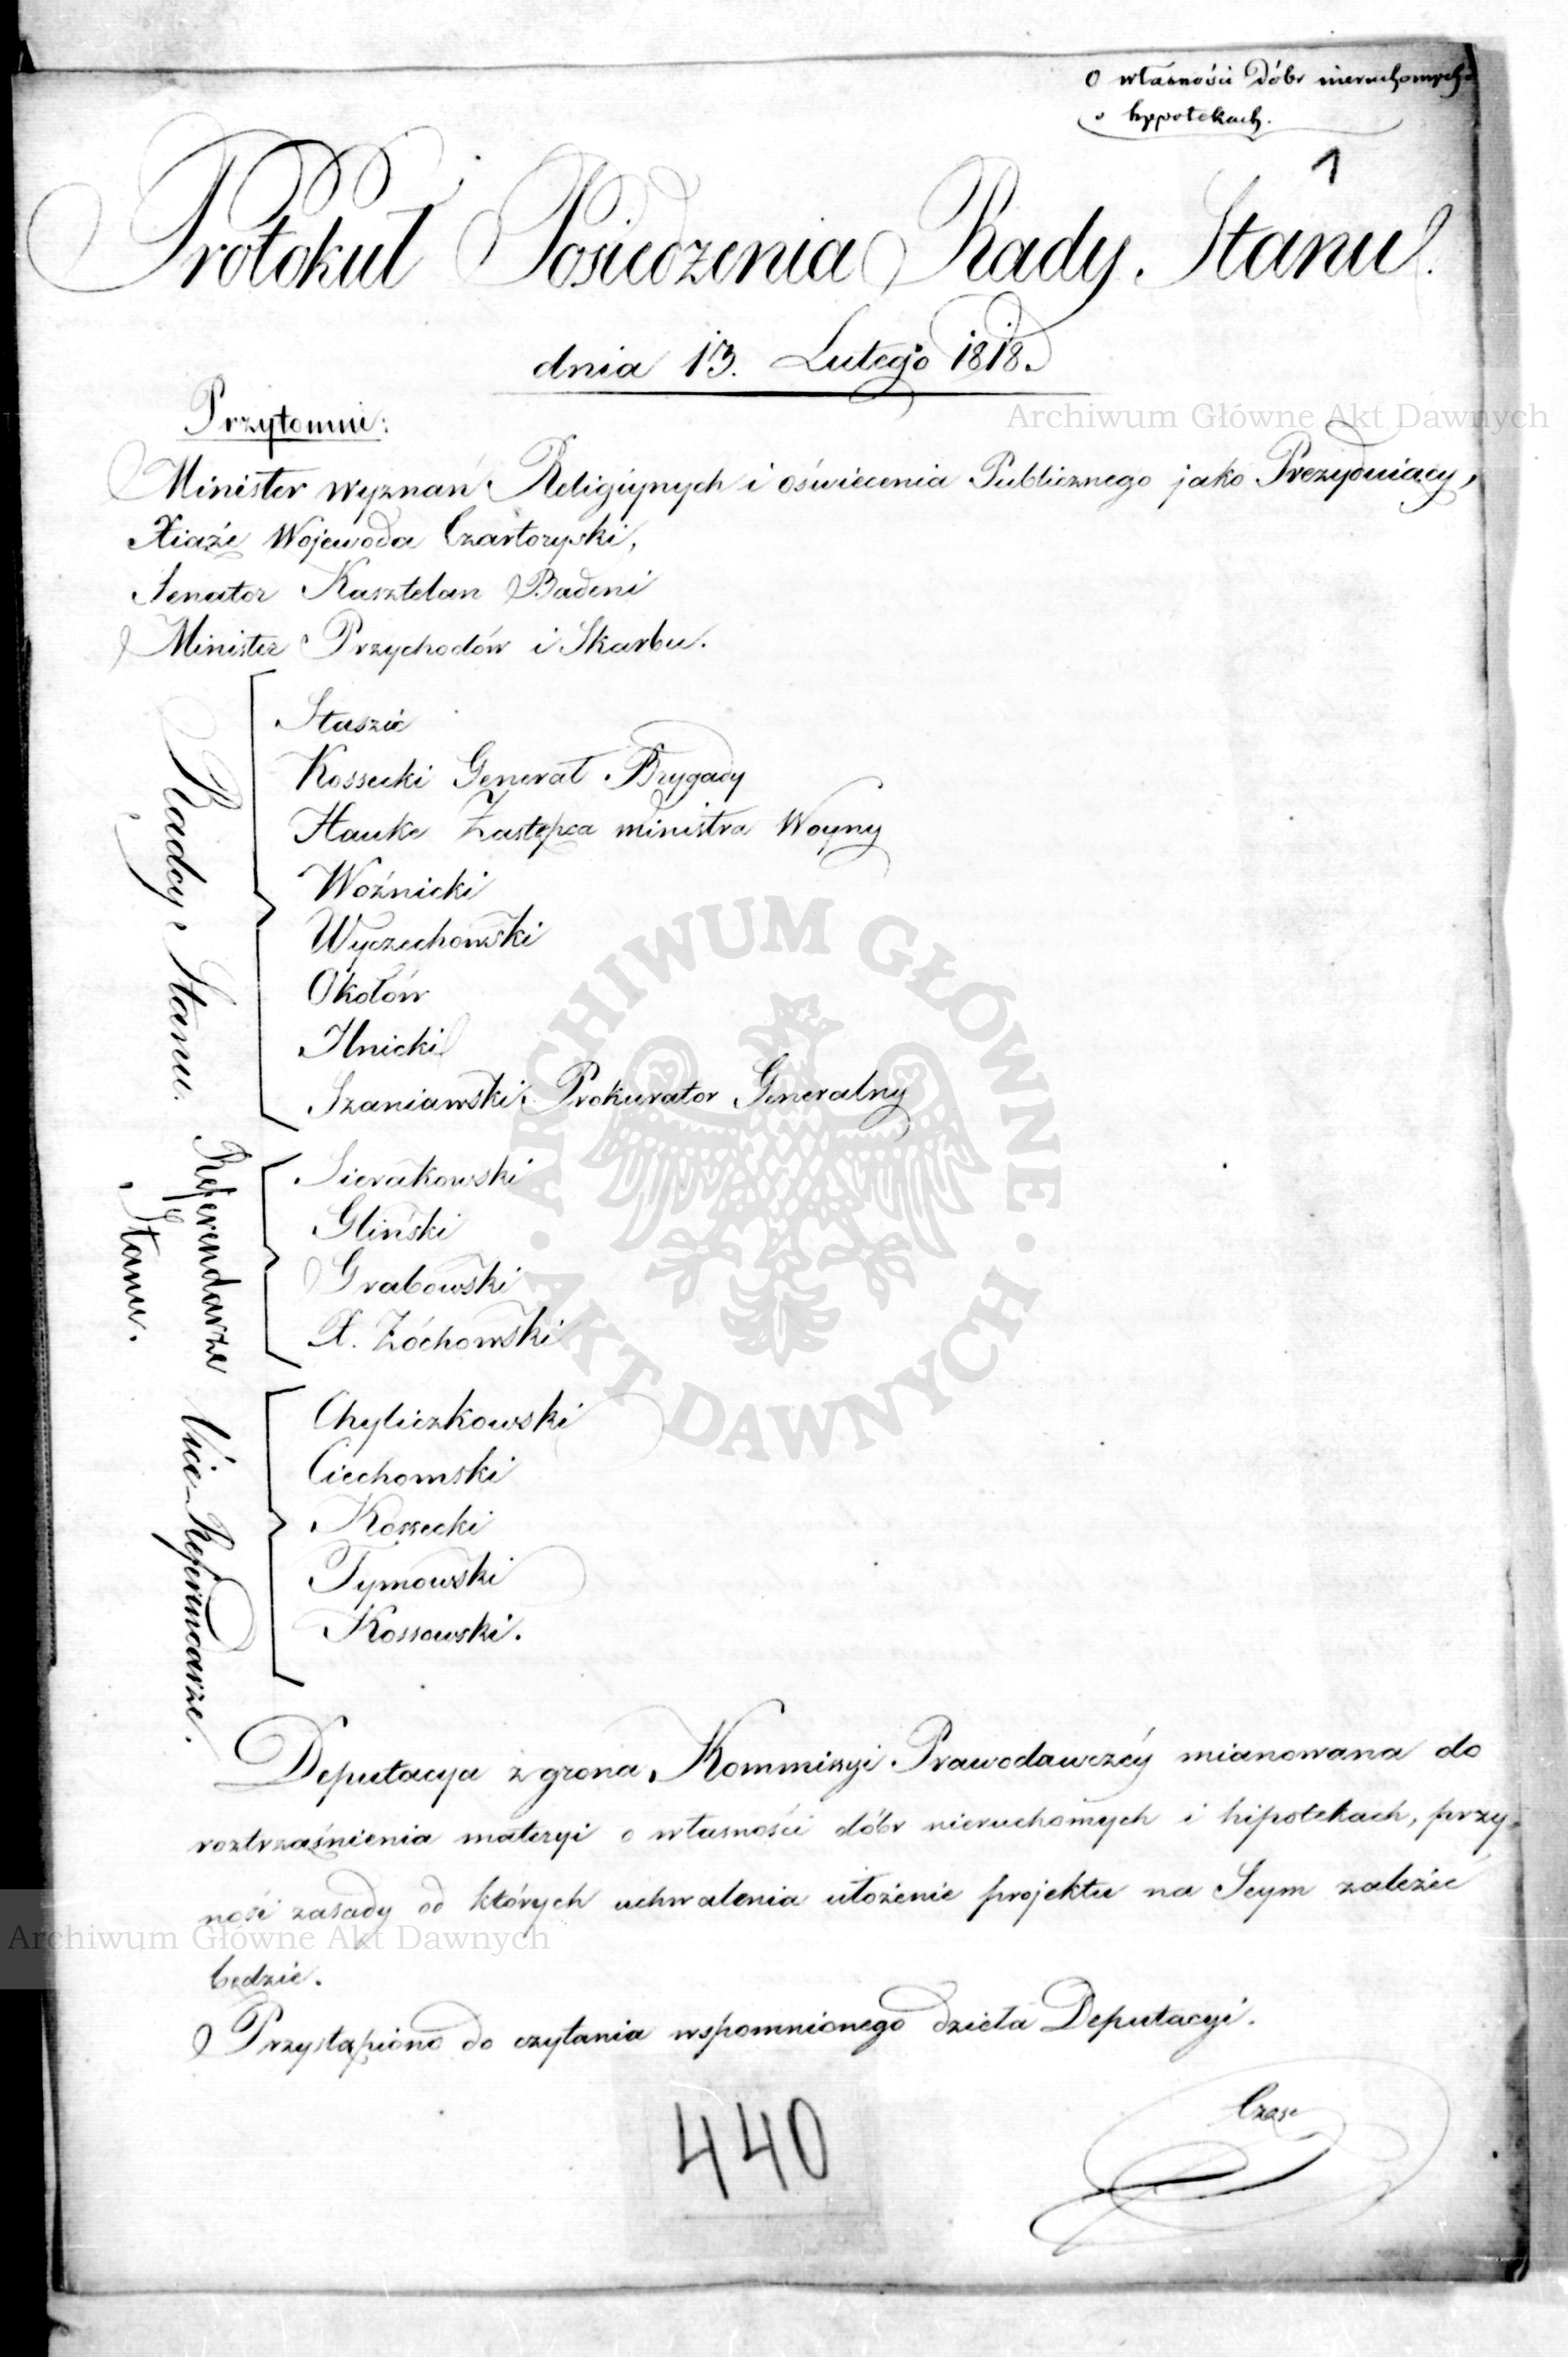 O własności dóbr nieruchomych
o hypotekach.
1
Protokuł Posiedzenia Rady Stanu
dnia 13. Lutego 1818.
Archiwum Główne Akt Dawnych
Przytomni:
Minister wyznań Religiynych i oświecenia Publicznego jako Prezyduiący,
Xiąże Wojewoda Czartoryski,
Senator Kasztelan Badeni
Minister Przychodów i Skarbu.
Radcy Stanu.
Staszic
Kossecki Generał Brygady
Hauke Zastępca ministra Woyny
Woźnicki
Wyczechowski
Okołów
Ilnicki
Szaniawski Prokurator Generalny
Referendarze
Stanu.
Sierakowski
Gliński
Grabowski
X. Żóchowski
Vice-Referendarze.
Chyliczkowski
Ciechomski
Kossecki
Tymowski
Kossowski.
ARCHIWUM GŁÓWNE AKT DAWNYCH
Deputacya z grona Kommissyi Prawodawczéy mianowana do
roztrząśnienia materyi o własności dóbr nieruchomych i hipotekach, przy
nosi zasady od których uchwalenia ułożenie projektu na Seym zależéć
będzie.
Archiwum Główne Akt Dawnych
Przystąpiono do czytania wspomnionego dzieła Deputacyi.
440